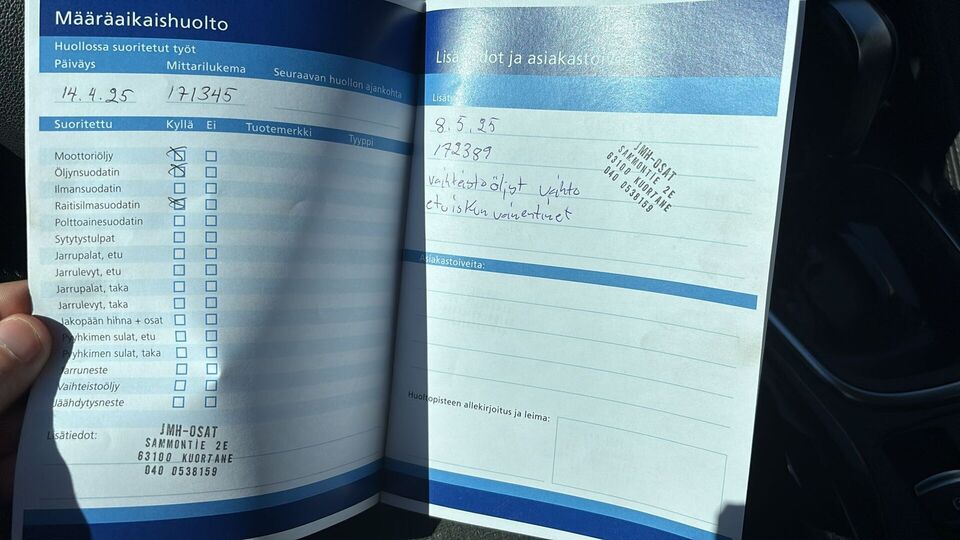 Määräaikaishuolto
Huollossa suoritetut työt
Päiväys Mittarilukema Seuraavan huollon ajankohta
14.4.25 171345
Suoritettu Kyllä Ei Tuotemerkki Tyyppi
Moottoriöljy
Öljynsuodatin
Ilmansuodatin
Raitisilmasuodatin
Polttoainesuodatin
Sytytystulpat
Jarrupalat, etu
Jarrulevyt, etu
Jarrupalat, taka
Jarrulevyt, taka
Jakopään hihna + osat
Pyyhkimen sulat, etu
Pyyhkimen sulat, taka
Jarruneste
Vaihteistoöljy
Jäähdytysneste
Lisätiedot:
JMH-OSAT
SAMMONTIE 2E
63100 KUORTANE
040 0538159
ja
8.5.25
172389
vaihteistoöljyt vaihto
etuiskunvaimentimet
JMH-OSAT
SAMMONTIE 2E
63100 KUORTANE
040 0538159
Asiakastoiveita:
Huoltopisteen allekirjoitus ja leima: